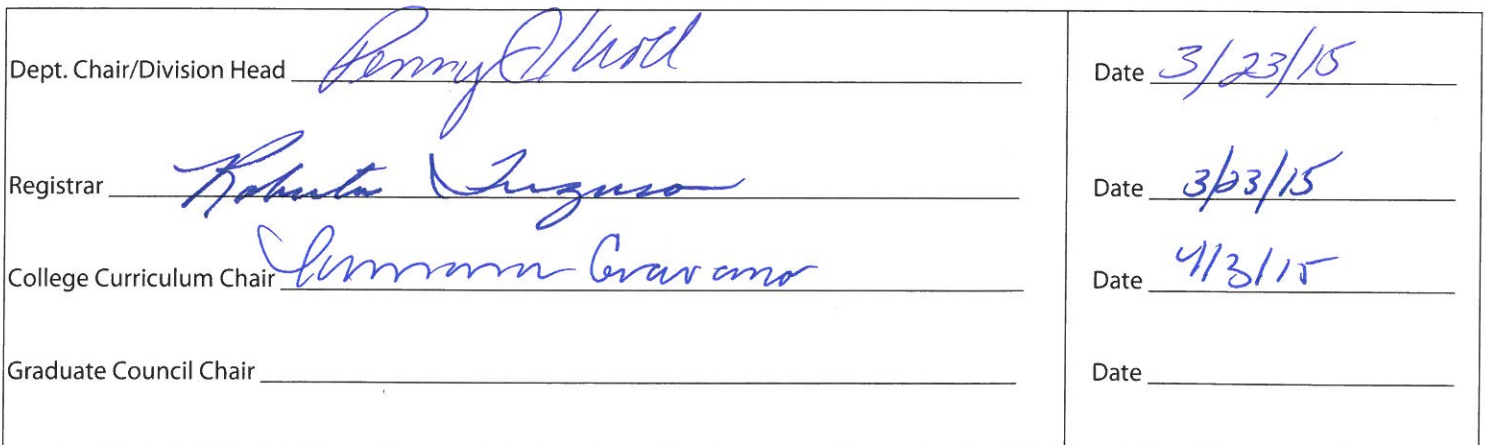 Dept. Chair/Division Head Penny Date 3/23/15
Registrar Roberta Ferguson Date 3/23/15
College Curriculum Chair Gravano Date 4/3/15
Graduate Council Chair Date